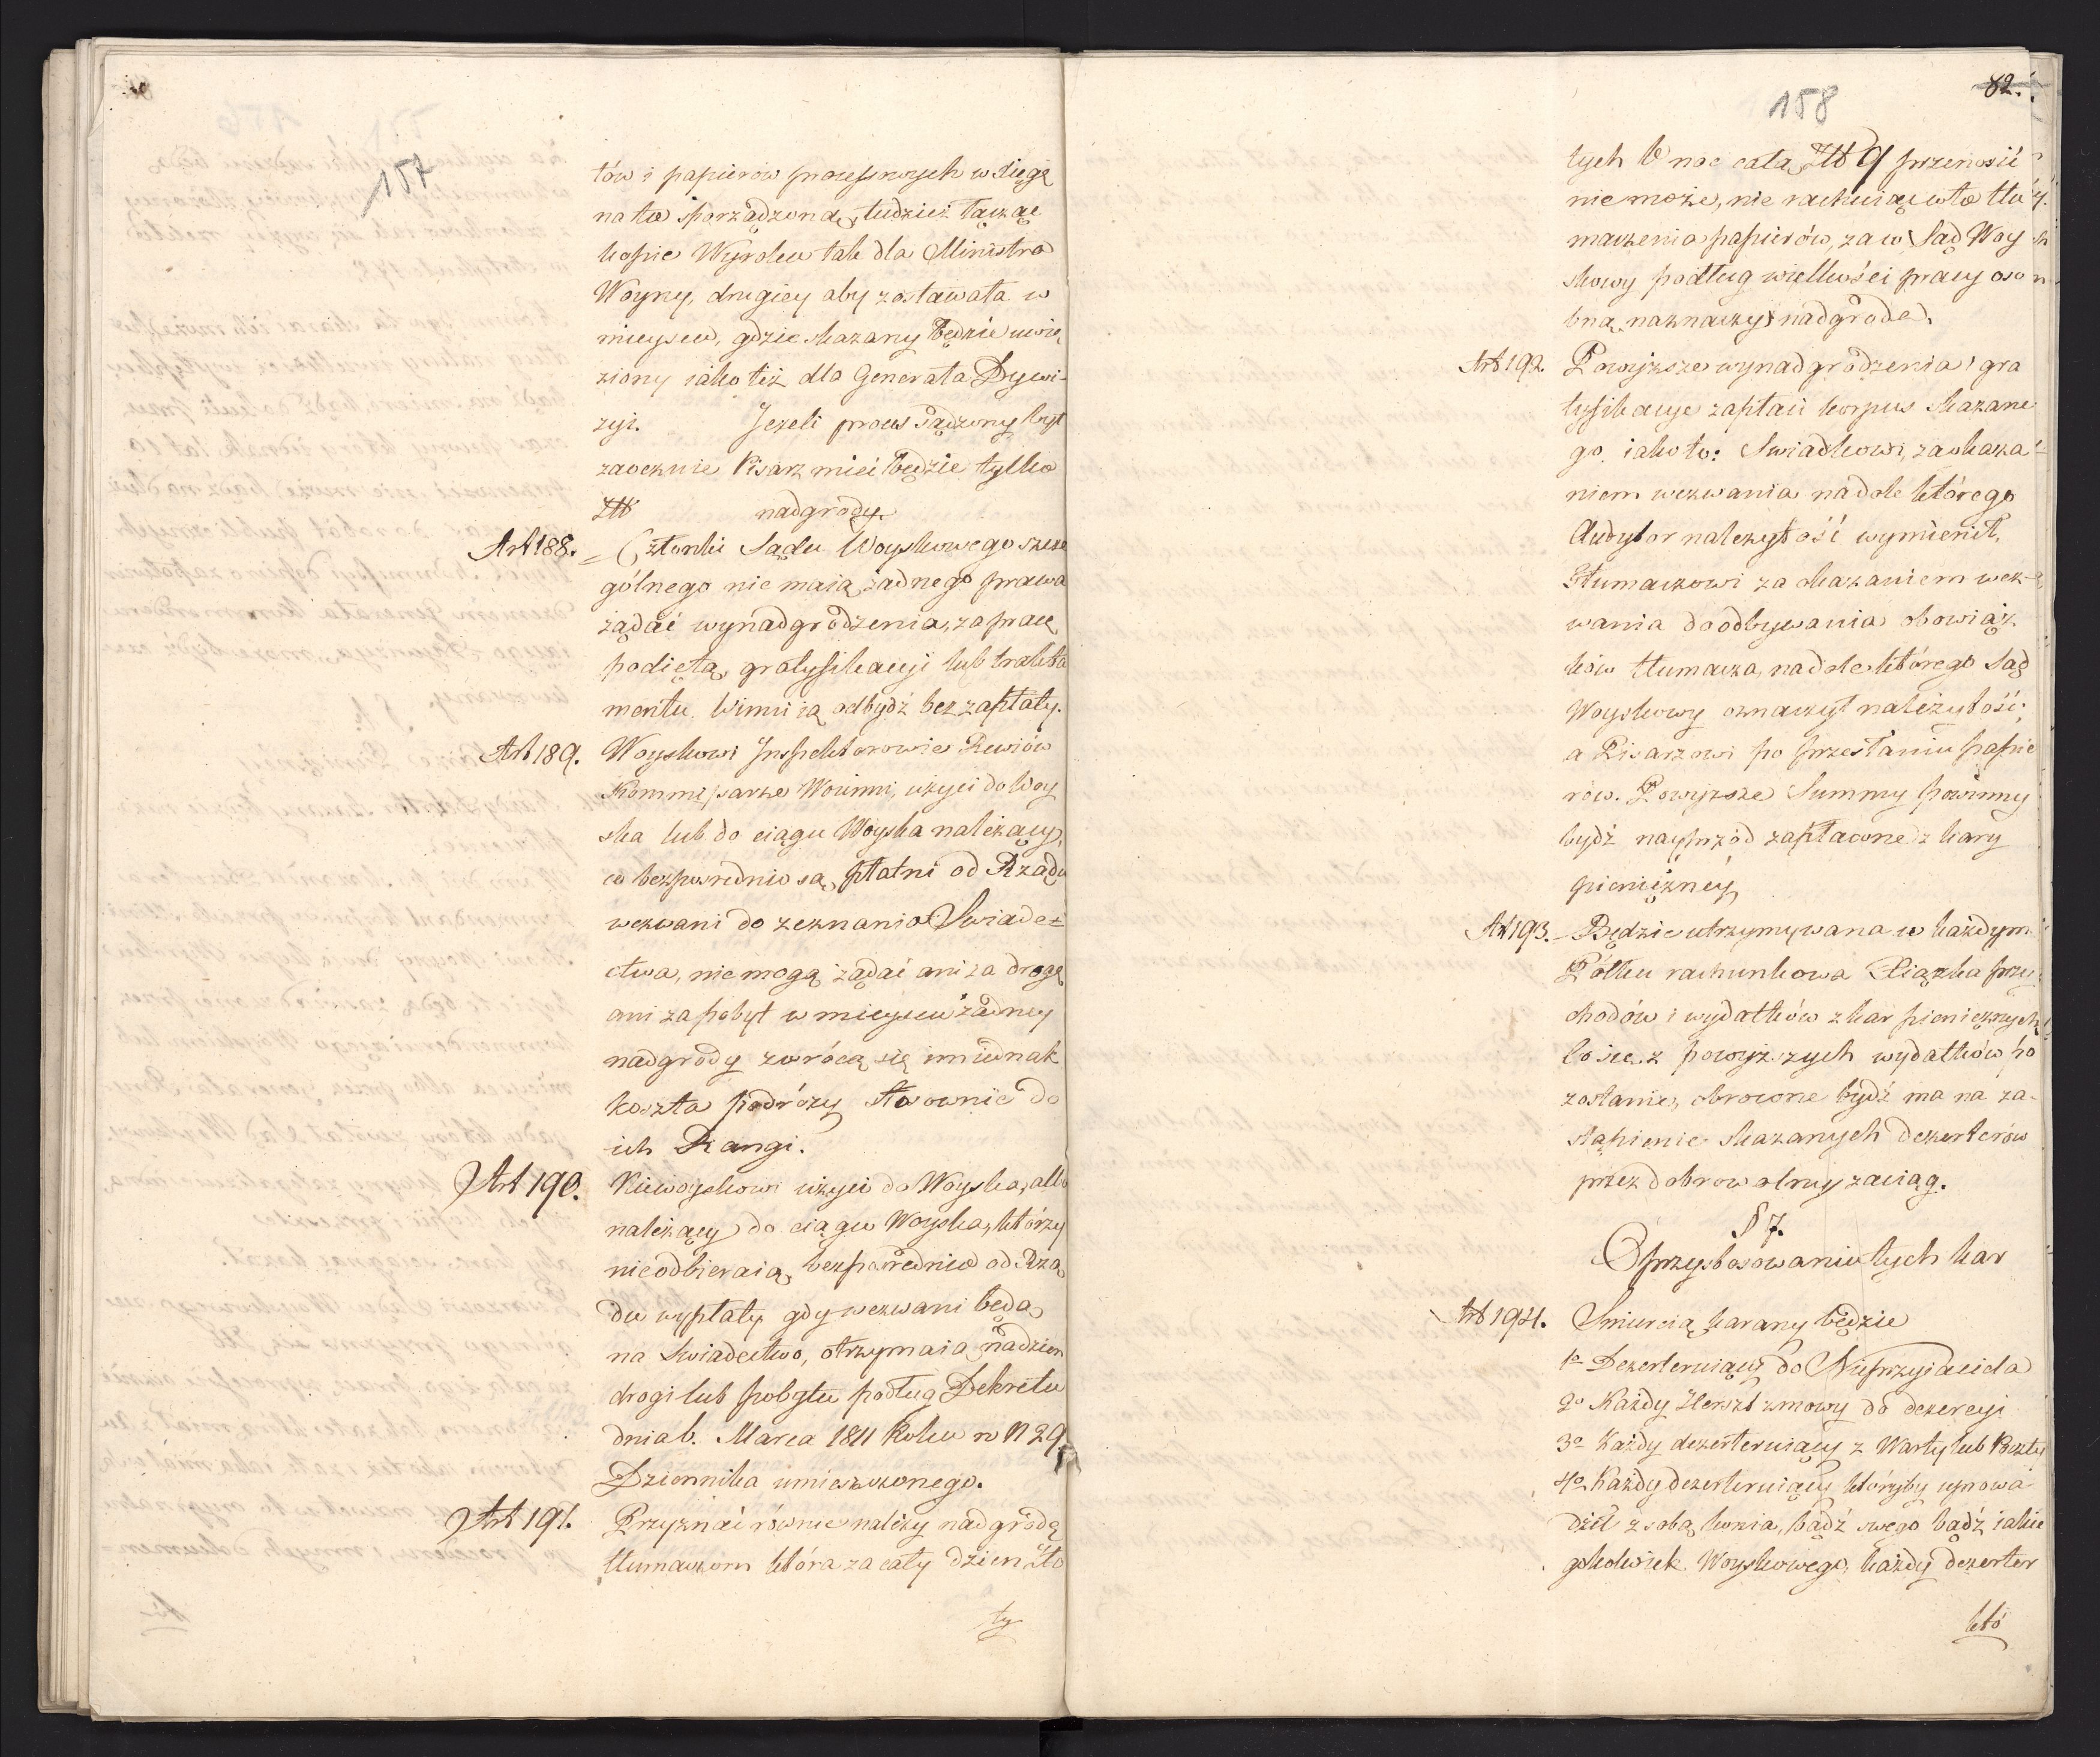 157
tów i papierow processowych w Xięgę
na to sporządzoną, tudzież łącząc
kopie Wyroku tak dla Ministra
Woyny, drugiey aby zostawała w
mieyscu, gdzie skazany będzie uwię
ziony iako też dla Generała Dywi-
zyi. Jeżeli proces sądzony był
zaocznie Pisarz mieć będzie tylko
Złł nadgrody.
Art 188. = Członki Sądu Woyskowego szcze
gólnego nie maią żadnego prawa
żądać wynadgrodzenia, za pracę
podiętą, gratyfikacyi lub trakta
mentu. Winni ią odbydź bez zapłaty.
Art 189. Woyskowi Inspektorowie Rewiów
Kommissarze Woienni, użyci do Woy
ska lub do ciągu Woyska należący,
co bezpośrednio są płatni od Rządu
wezwani do zeznania Swiade=
ctwa, nie mogą żądać ani za drogę
ani za pobyt w mieyscu żadney
nadgrody zwrócą się im iednak
koszta podróży stosownie do
ich Rangi.
Art 190. Niewoyskowi użyci do Woyska, albo
należący do ciągu Woyska, którzy
nieodbieraią bezpośrednio od Rzą
du wypłaty gdy wezwani będą
na Swiadectwo, otrzymaią nadzien
drogi lub pobytu podług Dekretu
dnia 6. Marca 1811 Roku w N 29
Dziennika umieszczonego.
Art 191. Przyznać równie należy nadgrodę
tłumaczom która za cały dzien zło
ty
82.
158
tych 6 noc całą Złł 9 przenosić
nie może, nie rachuiąc w to tłu
maczenia papierów, za co Sąd Woy
skowy podług wielkości pracy oso
bną naznaczy nadgrodę.
Art 192. Powyższe wynadgrodzenia i gra
tyfikacye zapłaci korpus skazane
go, iako to: Swiadkowi, za okaza=
niem wezwania na dole którego
Audytor należytość wymienił,
Tłumaczowi za okazaniem wez-
wania do odbywania obowiąz
ków tłumacza, na dole którego Sąd
Woyskowy oznaczył należytość;
a Pisarzowi po przesłaniu papie
rów. Powyższe Summy powinny
bydź nayprzód zapłacone z kary
pieniężney
Art 193. - Będzie utrzymywana w każdym
Półku rachunkowa Xiążka przy
chodów i wydatków z kar pieniężnych
to się z powyższych wydatków po
zostanie, obrocone bydź ma na za-
stąpienie skazanych dezerterów
przez dobrowolny zaciąg.
§ 7.
O przystosowaniu tych kar
Art 194. Smiercią karany będzie
1o Dezerteruiący do Nieprzyiaciela
2o Każdy Herszt zmowy do dezercyi
3o Każdy dezerteruiący z Warty lub Poczty
4o Każdy dezerteruiący któryby uprowa
dził z sobą konia, bądź swego bądź iakie
gokolwiek Woyskowego, każdy dezerter
któ